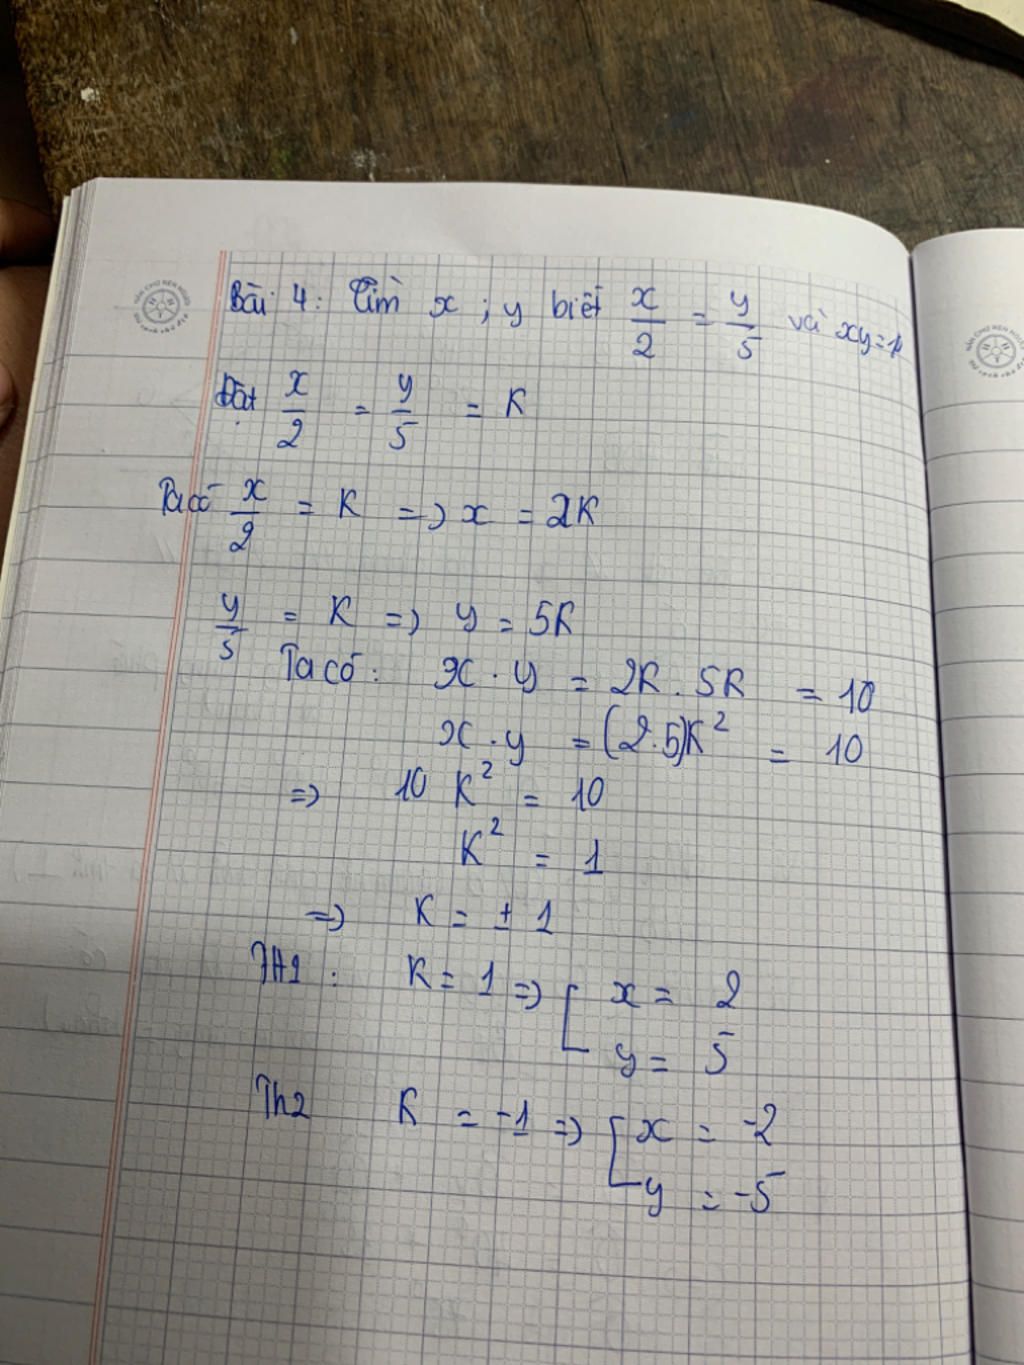 Bài 4: Tìm x ; y biết x/2 = y/5 và xy=
Đặt x/2 = y/5 = K
Ta có x/2 = K => x = 2K
y/5 = K => y = 5K
Ta có: x . y = 2K . 5K = 10
x . y = (2.5)K² = 10
=> 10 K² = 10
K² = 1
=> K = ± 1
TH1 : K = 1 => [ x = 2
y = 5
Th2 K = -1 => [ x = -2
y = -5